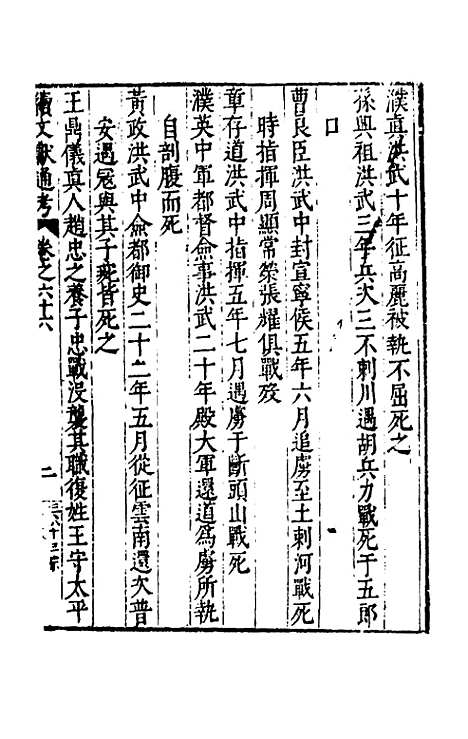 濮真洪武十年征高麗被執不屈死之
孫興祖洪武三年兵次三不剌川遇胡兵力戰死于五郎
口
曹良臣洪武中封宣寧侯五年六月追虜至土剌河戰死
時指揮周顯常榮張耀俱戰歿
章存道洪武中指揮五年七月遇虜于斷頭山戰死
濮英中軍都督僉事洪武二十年殿大軍還道為虜所執
自剖腹而死
黃政洪武中僉都御史二十二年五月從征雲南還次普
安遇寇與其子瓛皆死之
王鼎儀真人趙忠之養子忠戰沒襲其職復姓王守太平
續文獻通考 卷之六十六 二